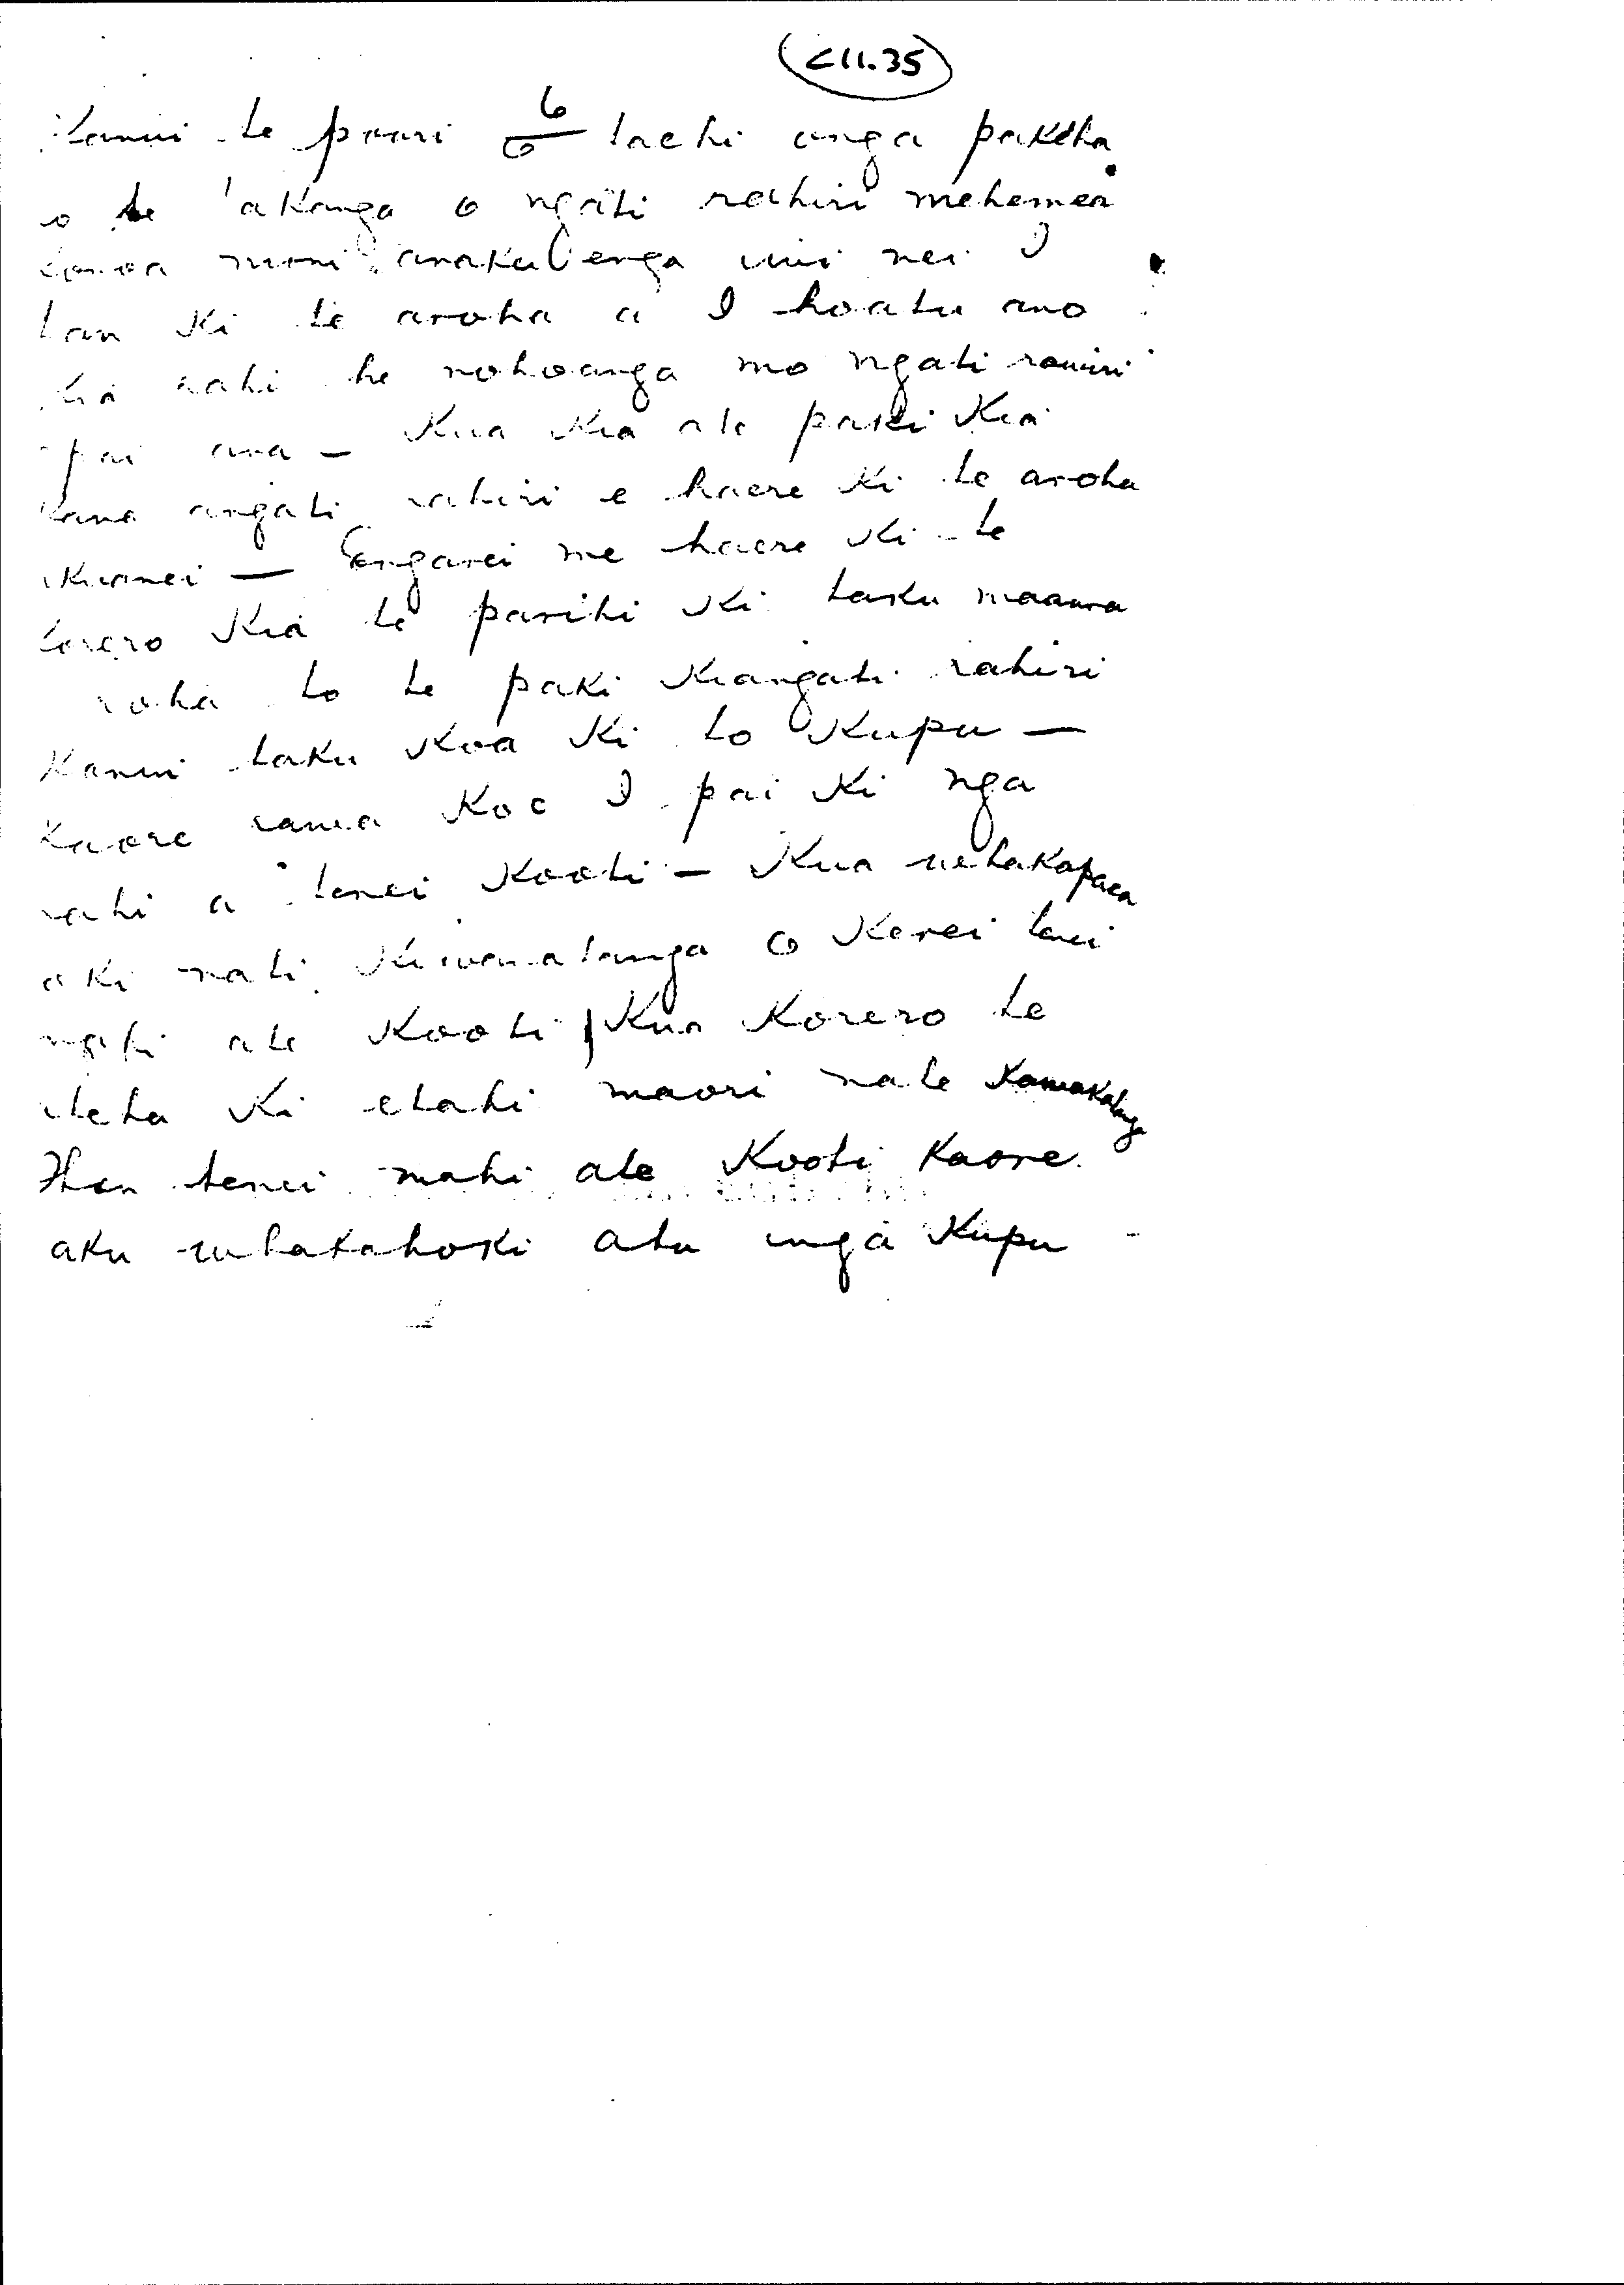 C11.35
Kanui te pouri 6/6 taehi anga pakeha
o te akanga o ngati rahiri mehemea
moni anaku enga iwi nei I
tau ki te aroha a I hoatu ano
kia rahi he nohoanga mo ngati rawiri
pai ana — Kua kia ate paki kia
Kana angati rahiri e haere ki te aroha
— Engarei me haere ki te
korero kia te parihi ki taku
to te paki kiangati rahiri
Kanui taku koa ki to kupu —
Kaore koe I pai ki nga
mahi a tenei kooti — Kua whakapaea
a ki nati o Kerei tenei
mahi ate kooti Kua korero te
teta ki etahi maori nate
tenei mahi ate kooti kaore
aku whakahoki atu inga kupu -